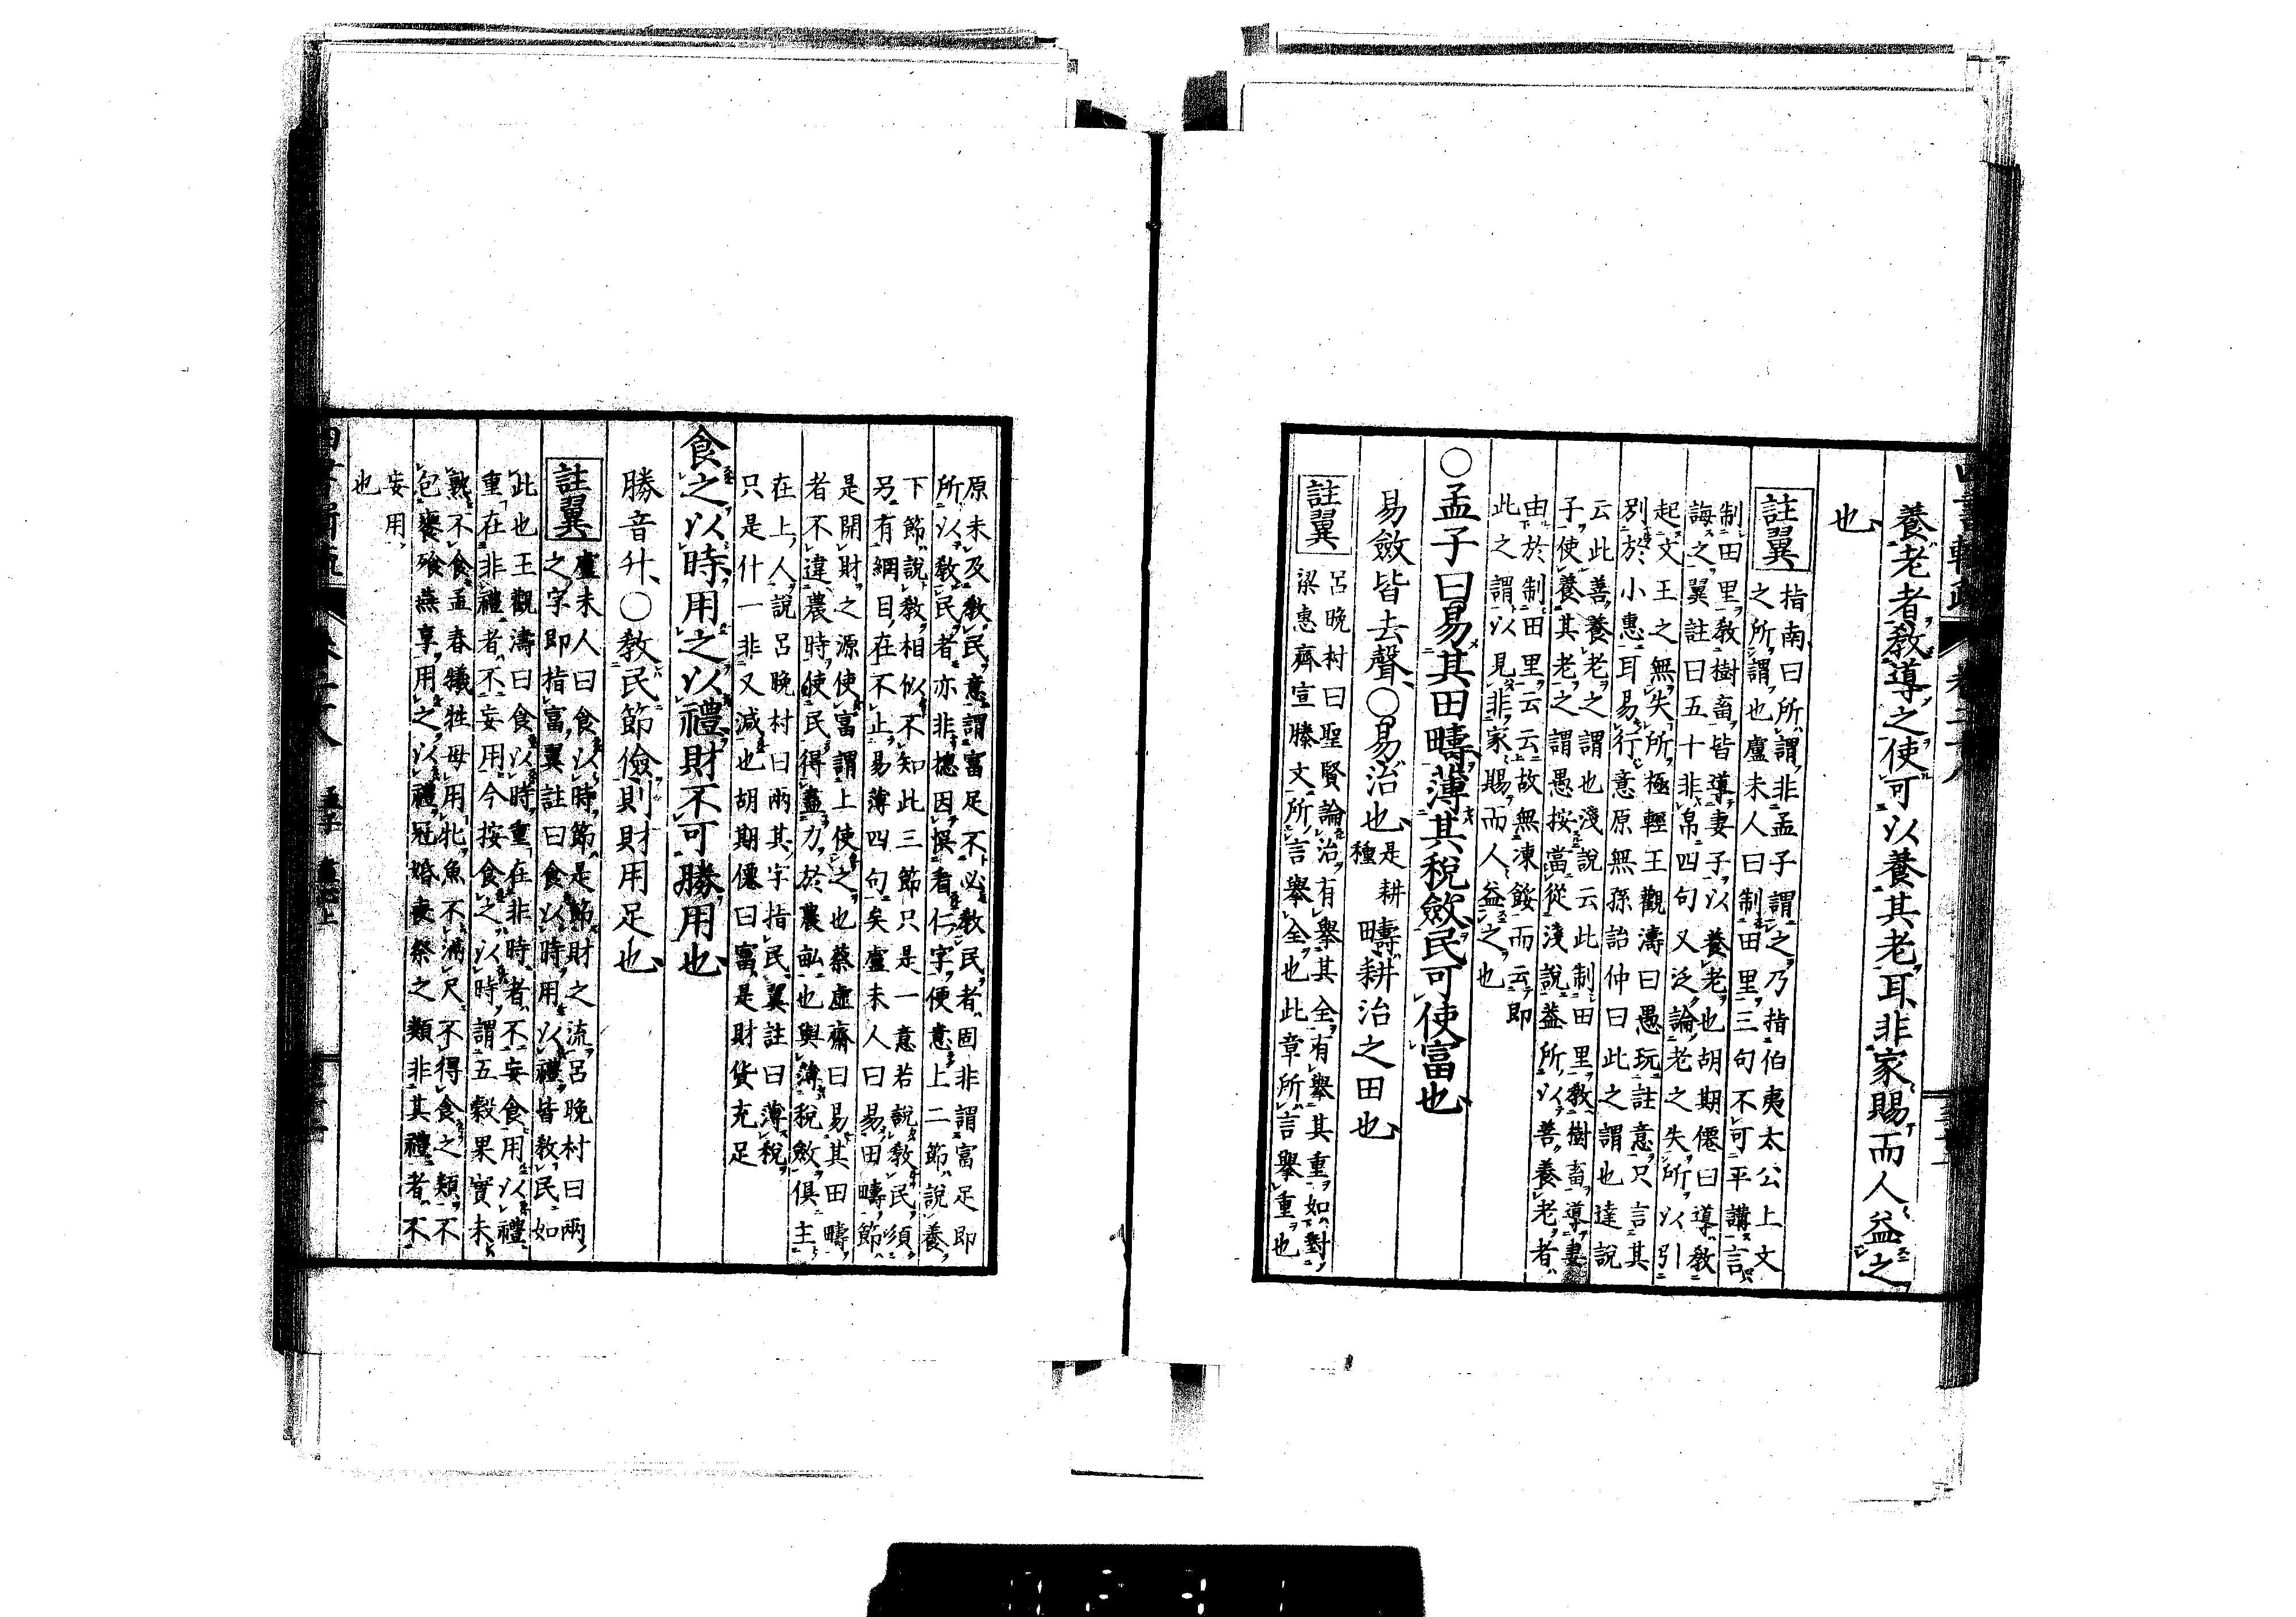 養老者教導之使可以養其老耳非家賜而人益之
也
註翼
指南曰所謂非孟子謂之乃指伯夷太公上文
之所謂也盧未人曰制田里三句不可平講言
制田里教樹畜皆導妻子以養老也胡期僊曰導教
誨之翼註曰五十非帛四句又泛論老之失所以引
起文王之無失所極輕王觀濤曰愚玩註意只言其
別於小惠耳易行意原無孫詒仲曰此之謂也達說
云此善養老之謂也淺說云此制田里教樹畜導妻
子使養其老之謂愚按當從淺說益所以善養老者
由於制田里云云故無凍餒而云即
此之謂以見非家賜而人益之也
○孟子曰易其田疇薄其稅斂民可使富也
易斂皆去聲○易治也是耕種疇耕治之田也
註翼
呂晚村曰聖賢論治有舉其全有舉其重如對
梁惠齊宣滕文所言舉全也此章所言舉重也
原未及教民意謂富足不必教民者固非謂富足即
所以教民者亦非摠因悞看仁字便意上二節說養
下節說教相似不知此三節只是一意若說教民須
另有綱目在不止易薄四句矣盧未人曰易田疇節
是開財之源使富謂上使之也蔡虛齋曰易其田疇
者不違農時使民得盡力於農畝也與薄稅斂俱主
在上人說呂晚村曰兩其字指民翼註曰薄稅
只是什一非又減也胡期僊曰富是財貨充足
食之以時用之以禮財不可勝用也
勝音升○教民節儉則財用足也
註翼
盧未人曰食以時節是節財之流呂晚村曰兩
之字即指富翼註曰食以時用以禮皆教民如
此也王觀濤曰食以時重在非時者不妄食用以禮
重在非禮者不妄用今按食之以時謂五穀果實未
熟不食孟春犧牲毋用牝魚不滿尺不得食之類不
包饔飱燕享用之以禮冠婚喪祭之類非其禮者不
妄用
也